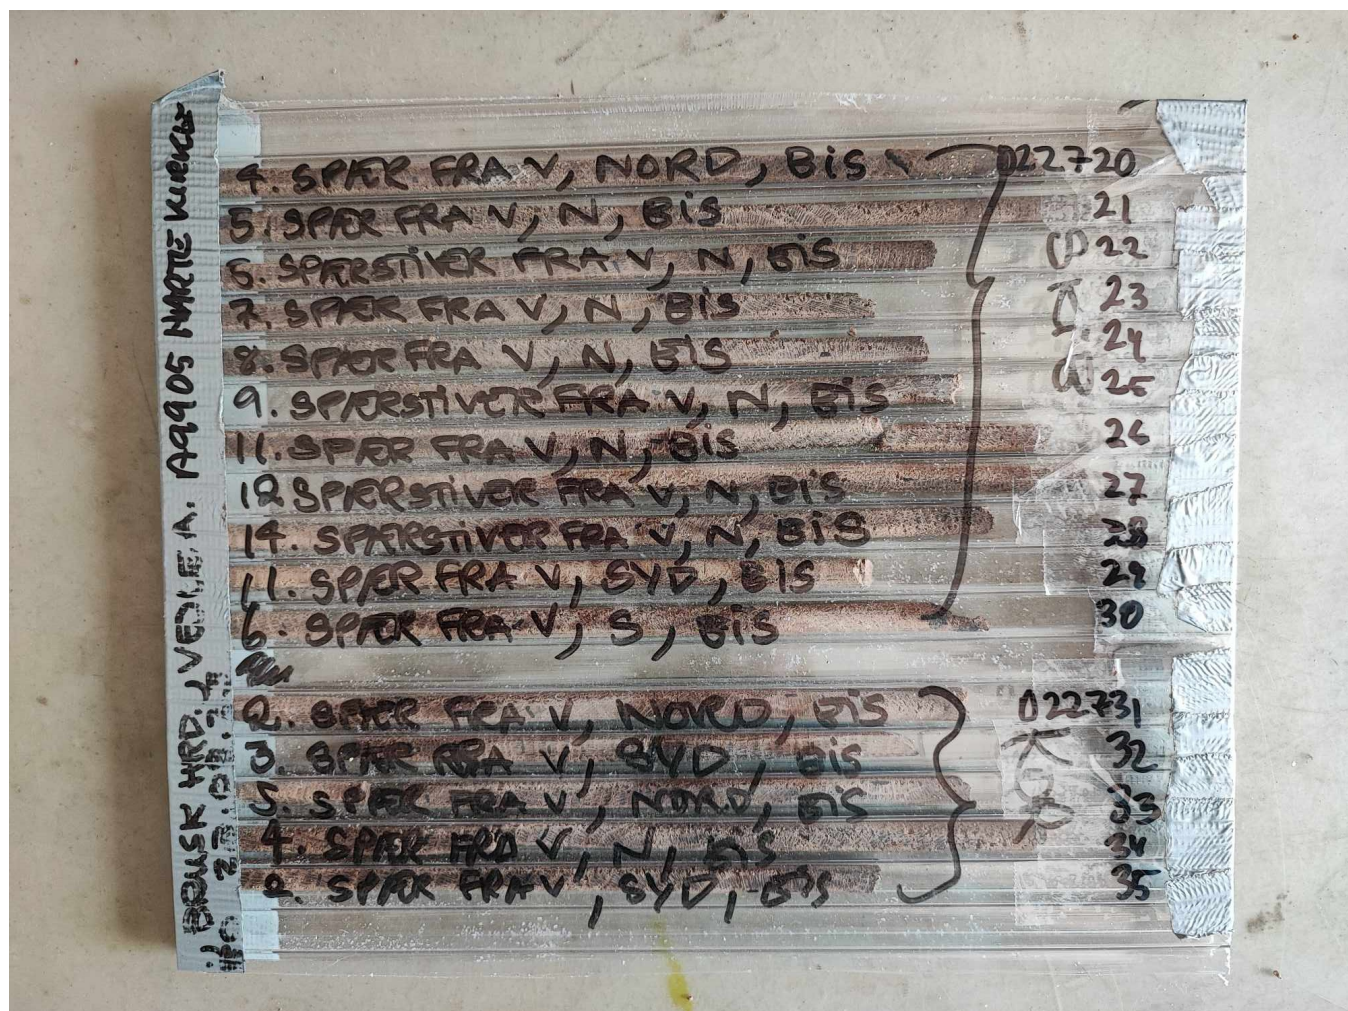 A9905 HARTE KIRKE
BRUSK HRD., VEJLE A.
4. SPÆR FRA V, NORD, BIS 022720
5. SPÆR FRA V, N, BIS 21
6. SPÆRSTIVER FRA V, N, BIS 22
7. SPÆR FRA V, N, BIS 23
8. SPÆR FRA V, N, BIS 24
9. SPÆRSTIVER FRA V, N, BIS 25
11. SPÆR FRA V, N, BIS 26
12 SPÆRSTIVER FRA V, N, BIS 27
14. SPÆRSTIVER FRA V, N, BIS 28
11. SPÆR FRA V, SYD, BIS 29
6. SPÆR FRA V, S, BIS 30
2. SPÆR FRA V, NORD, BIS 022731
3. SPÆR FRA V, SYD, BIS 32
5. SPÆR FRA V, NORD, BIS 33
4. SPÆR FRA V, N, BIS 34
2. SPÆR FRA V, SYD, BIS 35